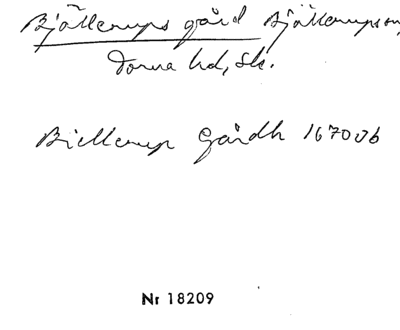 Bjällerups gård Bjällerup sn,
Torna hd, Sk.
Biellerup Gårdh 1670 Jb
Nr 18209